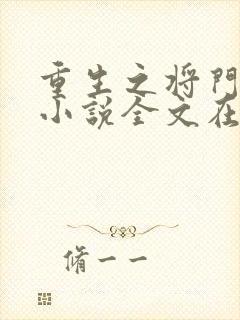 重生之将門
小説全文在
脩一一